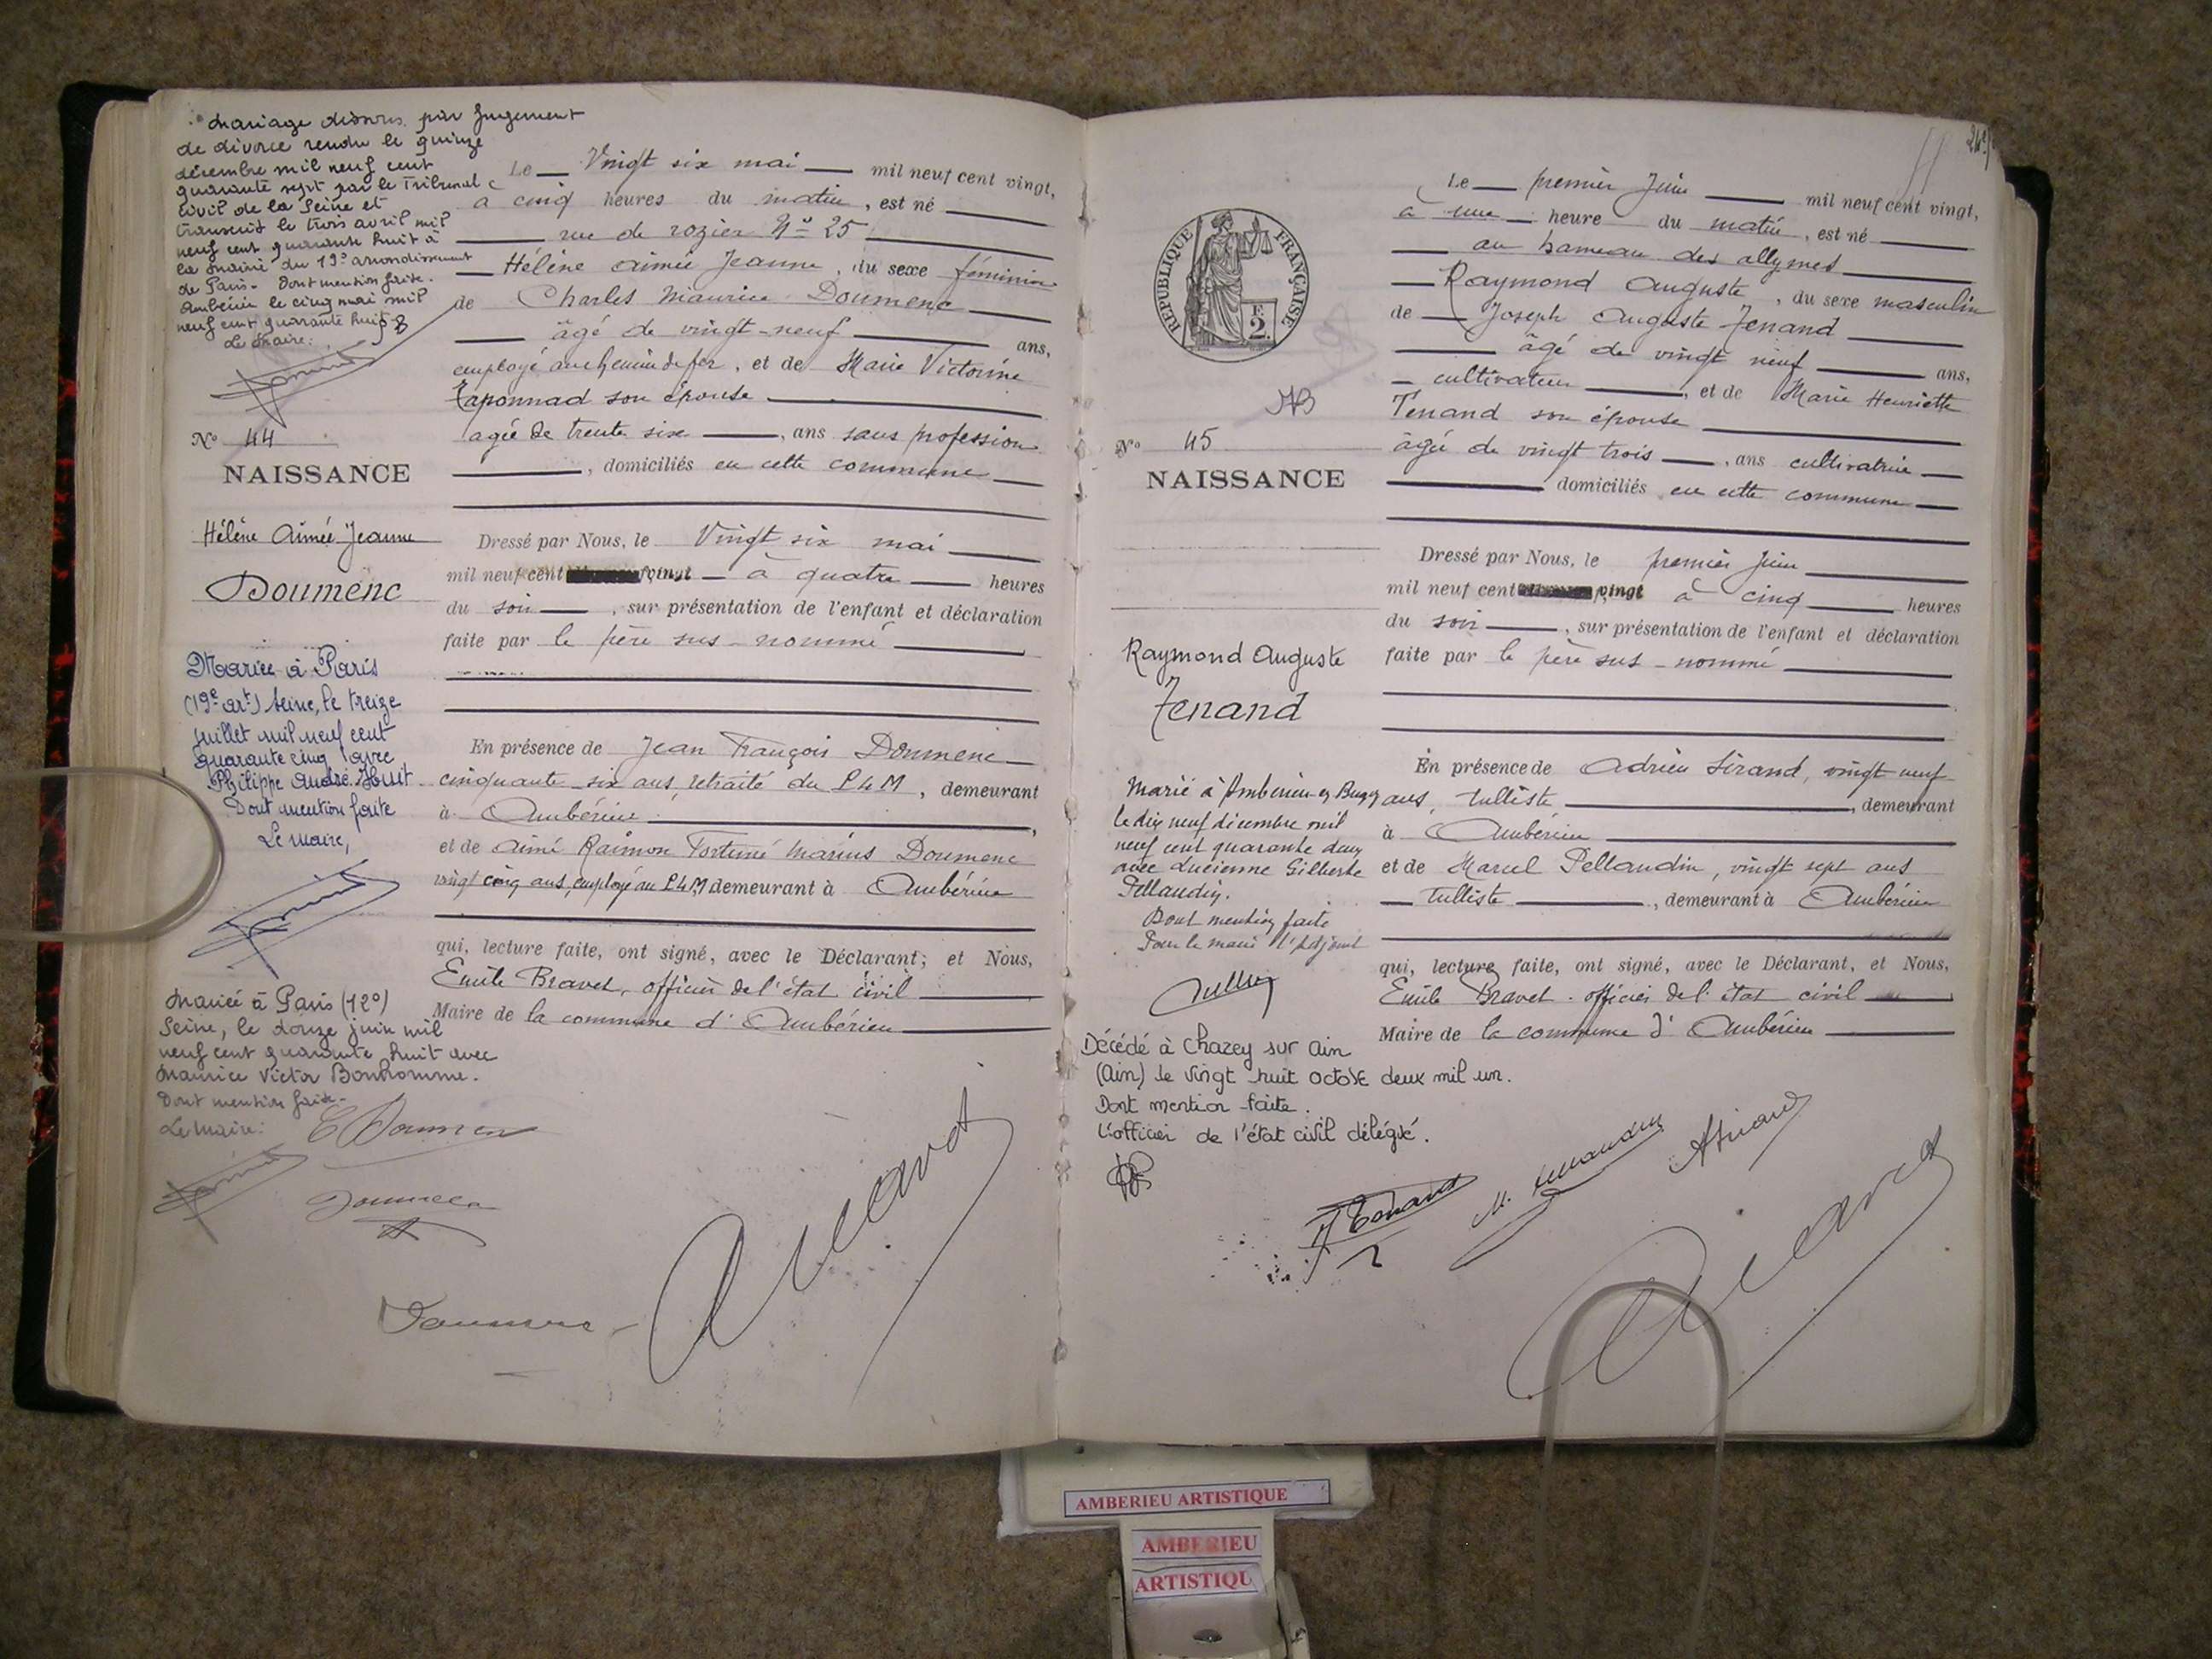 Mariage dissous par jugement
de divorce rendu le quinze
décembre mil neuf cent
quarante sept par le Tribunal
civil de la Seine et
transcrit le trois avril mil
neuf cent quarante huit à
la mairie du 19e arrondissement
de Paris. Dont mention faite.
Ambérieu le cinq mai mil
neuf cent quarante huit
Le Maire:
N° 44
NAISSANCE
Hélène Aimée Jeanne
Doumenc
Mariée à Paris
(19e art) Seine, le treize
juillet mil neuf cent
quarante cinq avec
Philippe André
Dont mention faite
Le Maire,
Mariée à Paris (12e)
Seine, le douze juin mil
neuf cent quarante huit avec
Maurice Victor Bonhomme.
Dont mention faite.
Le Maire:
Le Vingt six mai mil neuf cent vingt,
à cinq heures du matin, est né
rue de rozier N° 25
Hélène Aimée Jeanne, du sexe féminin
de Charles Maurice Doumenc
âgé de vingt-neuf ans,
employé au chemin de fer, et de Marie Victorine
Taponnad son épouse
âgée de trente six, ans sans profession
, domiciliés en cette commune
Dressé par Nous, le Vingt six mai
mil neuf cent vingt à quatre heures
du soir, sur présentation de l'enfant et déclaration
faite par le père sus-nommé
En présence de Jean François Doumenc
cinquante six ans, retraité du PLM, demeurant
à Ambérieu,
et de Aimé Raimon Fortuné Marius Doumenc
vingt cinq ans, employé au PLM demeurant à Ambérieu
qui, lecture faite, ont signé, avec le Déclarant; et Nous,
Emile Bravet, officier de l'état civil
Maire de la commune d'Ambérieu
Doumenc
RÉPUBLIQUE FRANÇAISE
F.
2.
N° 45
NAISSANCE
Raymond Auguste
Tenand
Marié à Ambérieu-en-Bugey
le dix neuf décembre mil
neuf cent quarante deux
avec Lucienne Gilberte
Pellaudin.
Dont mention faite
Pour le maire l'Adjoint
Décédé à Chazey sur Ain
(Ain) le vingt huit octobre deux mil un.
Dont mention faite.
L'officier de l'état civil délégué.
Le premier Juin mil neuf cent vingt,
à une heure du matin, est né
au hameau des allymes
Raymond Auguste, du sexe masculin
de Joseph Auguste Tenand
âgé de vingt neuf ans,
cultivateur, et de Marie Henriette
Tenand son épouse
âgée de vingt trois, ans cultivatrice
domiciliés en cette commune
Dressé par Nous, le premier Juin
mil neuf cent vingt à cinq heures
du soir, sur présentation de l'enfant et déclaration
faite par le père sus-nommé
En présence de Adrien Sirand, vingt neuf
ans, tulliste, demeurant
à Ambérieu
et de Marcel Pellaudin, vingt sept ans
tulliste, demeurant à Ambérieu
qui, lecture faite, ont signé, avec le Déclarant, et Nous,
Emile Bravet. officier de l'état civil
Maire de la commune d'Ambérieu
AMBERIEU ARTISTIQUE
AMBERIEU
ARTISTIQU